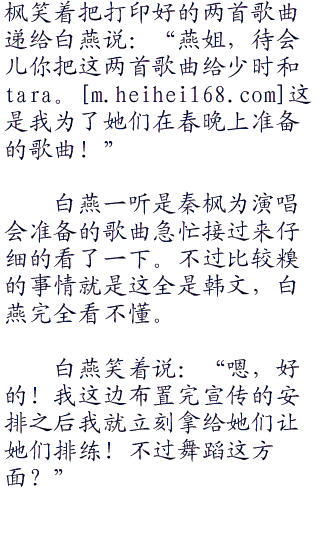 枫笑着把打印好的两首歌曲
递给白燕说：“燕姐，待会
儿你把这两首歌曲给少时和
tara。[m.heihei168.com]这
是我为了她们在春晚上准备
的歌曲！”
白燕一听是秦枫为演唱
会准备的歌曲急忙接过来仔
细的看了一下。不过比较糗
的事情就是这全是韩文，白
燕完全看不懂。
白燕笑着说：“嗯，好
的！我这边布置完宣传的安
排之后我就立刻拿给她们让
她们排练！不过舞蹈这方
面？”